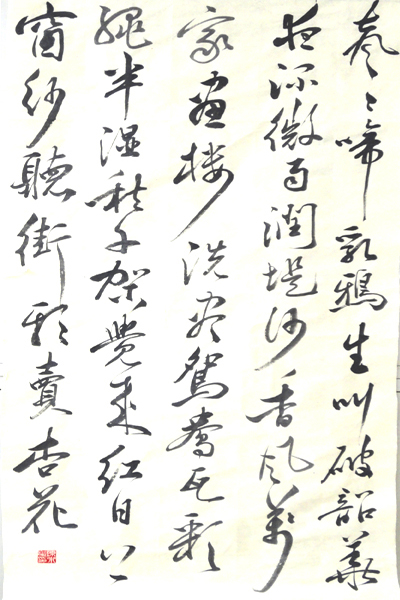 聲々啼乳鴉生叫破韶華
夜深微雨潤堤沙香風萬
家畫樓洗盡鴛鴦瓦彩
繩半濕秋千架覺來紅日上
窗紗聽街頭賣杏花